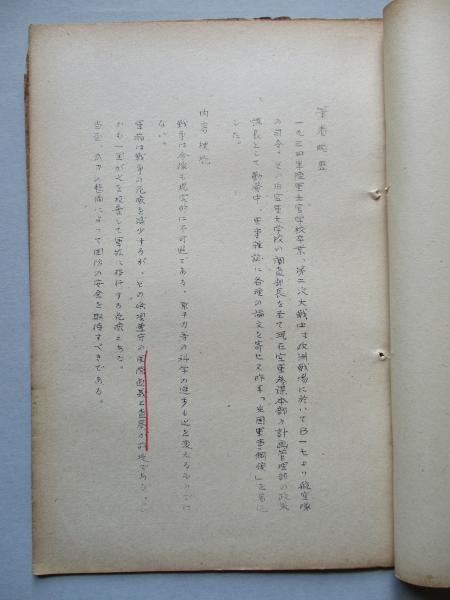 筆者略歴
一九三四年陸軍士官学校卒業、第二次大戦中は欧洲戦場に於いてB一七より航空隊
の司令、その后空軍大学校の調査部長を至て現在空軍参謀本部の計画管理部の政策
課長として勤務中、軍事雑誌に各種の論文を寄せ又昨年「米国軍事綱領」を著は
した。
内容梗概
戦争は今后も現実的に不可避である。原子力等の科学の進歩も之を変えるものでは
ない。
軍縮は戦争の危険を減少するが、その的遵守の国際的査察が前提である。し
かも一国が之を投棄して軍拡に移行する危険もある。
当面、武力の整備によって国防の安全を期待すべきである。